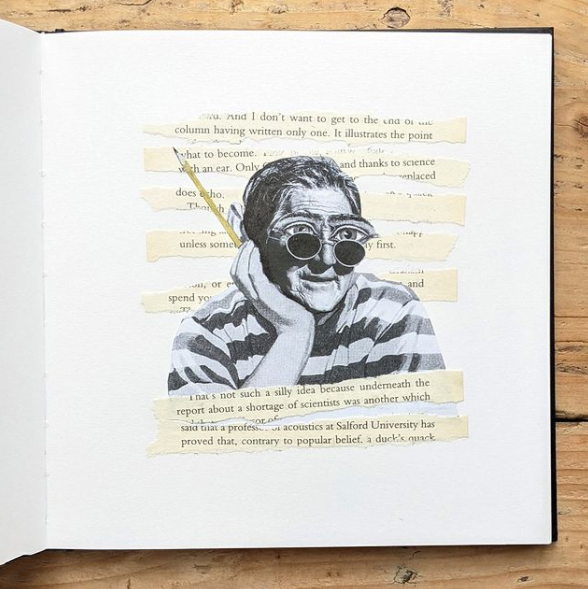 And I don't want to get to the end of
column having written only one. It illustrates the point
what to become.
with an ear. Only
and thanks to science
does echo.
Though
unless
first.
or
and
spend
That's not such a silly idea because underneath the
report about a shortage of scientists was another which
said that a of acoustics at Salford University has
proved that, contrary to popular belief, a duck's quack